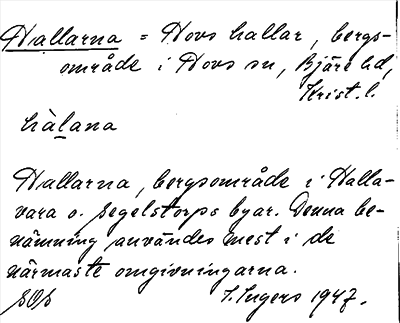 Hallarna = Hovs hallar, bergs-
område i Hovs sn, Bjäre hd,
Krist. l.
hàlana
Hallarna, bergsområde i Halla-
vara o. Segelstorps byar. Denna be-
nämning användes mest i de
närmaste omgivningarna.
SOS I. Ingers 1947.